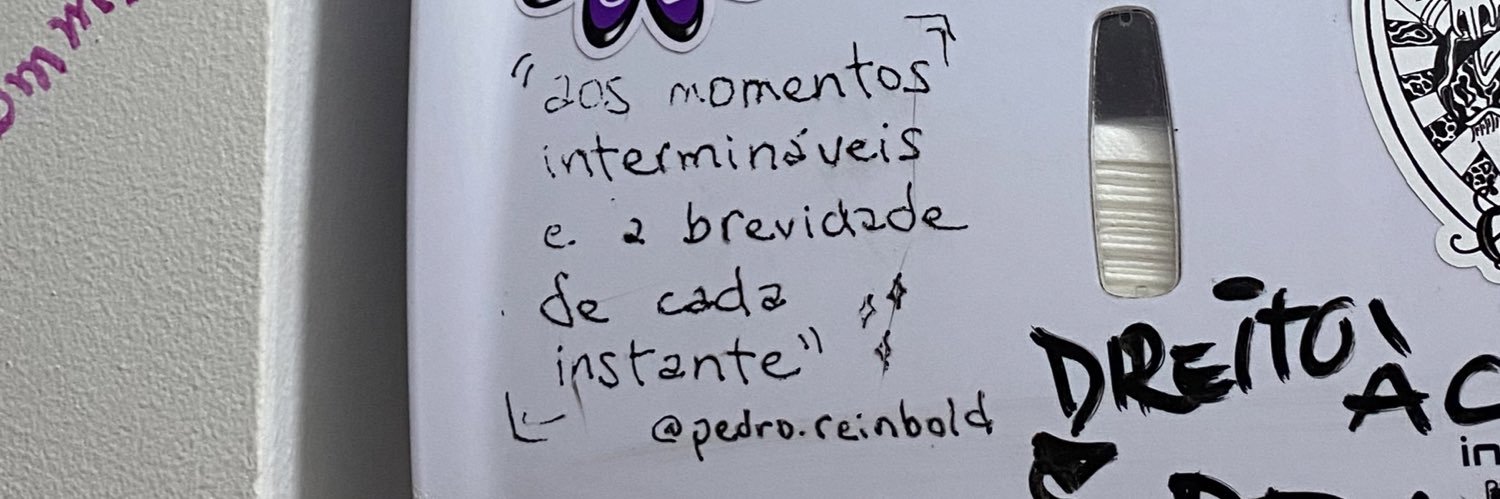 "aos momentos
intermináveis
e a brevidade
de cada
instante"
@pedro.reinbold
DIREITO
À